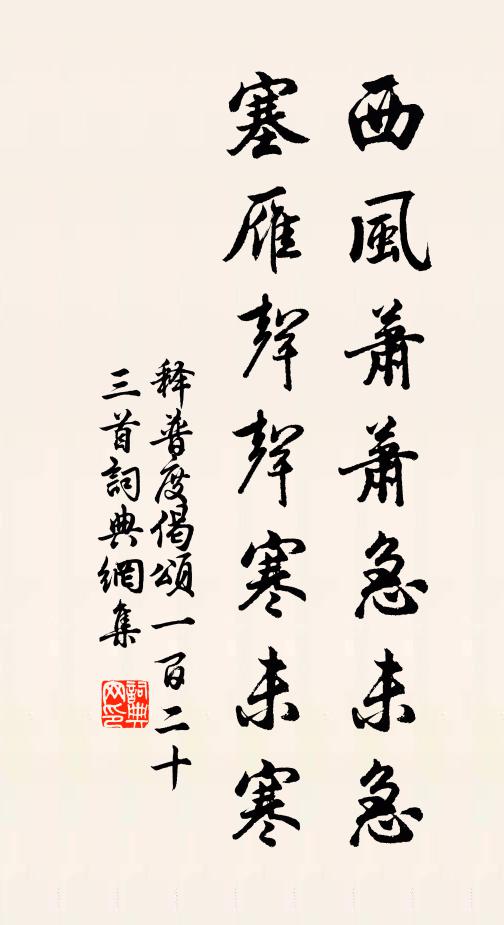 西風蕭蕭急未急
塞雁聲聲寒未寒
释普度偈頌一百二十
三首詞典網集
詞典
网印